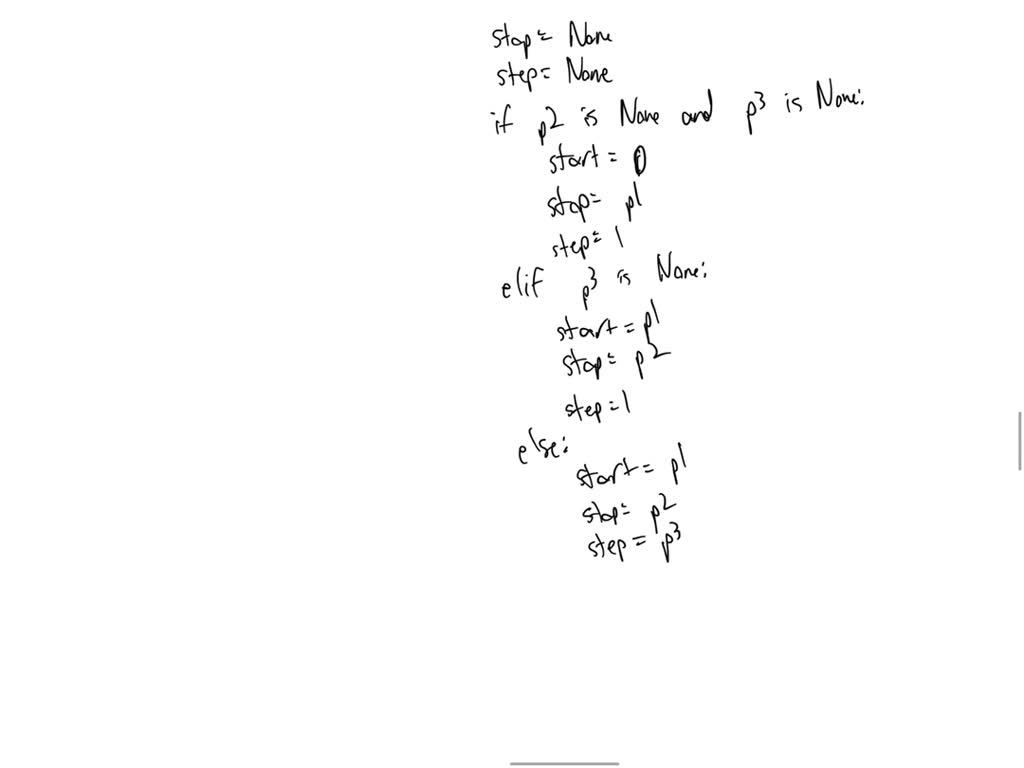 stop = None
step = None
if p2 is None and p3 is None:
start = 0
stop = p1
step = 1
elif p3 is None:
start = p1
stop = p2
step = 1
else:
start = p1
stop = p2
step = p3